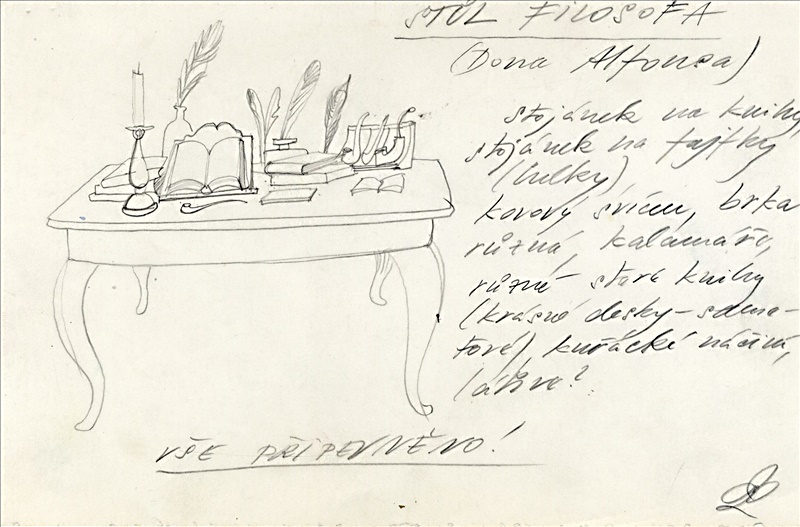 STŮL FILOSOFA
(Dona Alfonsa)
stojánek na knihy,
stojánek na fajfky
(lulky)
kovový svícen, brka
různá, kalamáře,
různé stará knihy
(krásné desky – same-
tové), kuřácké náčiní,
láhve?
VŠE PŘIPEVNĚNO!